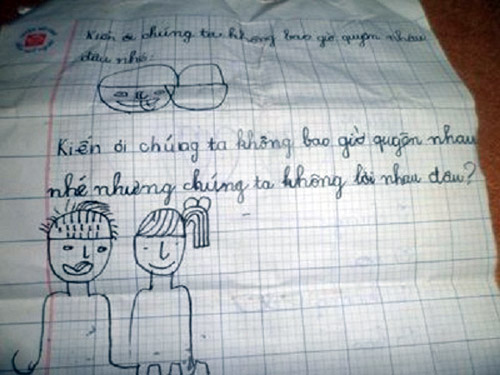 Kiến ơi chúng ta không bao giờ quyện nhau
đâu nhé.
Kiến ơi chúng ta không bao giờ quyện nhau
nhé nhưng chúng ta không lời nhau đâu?